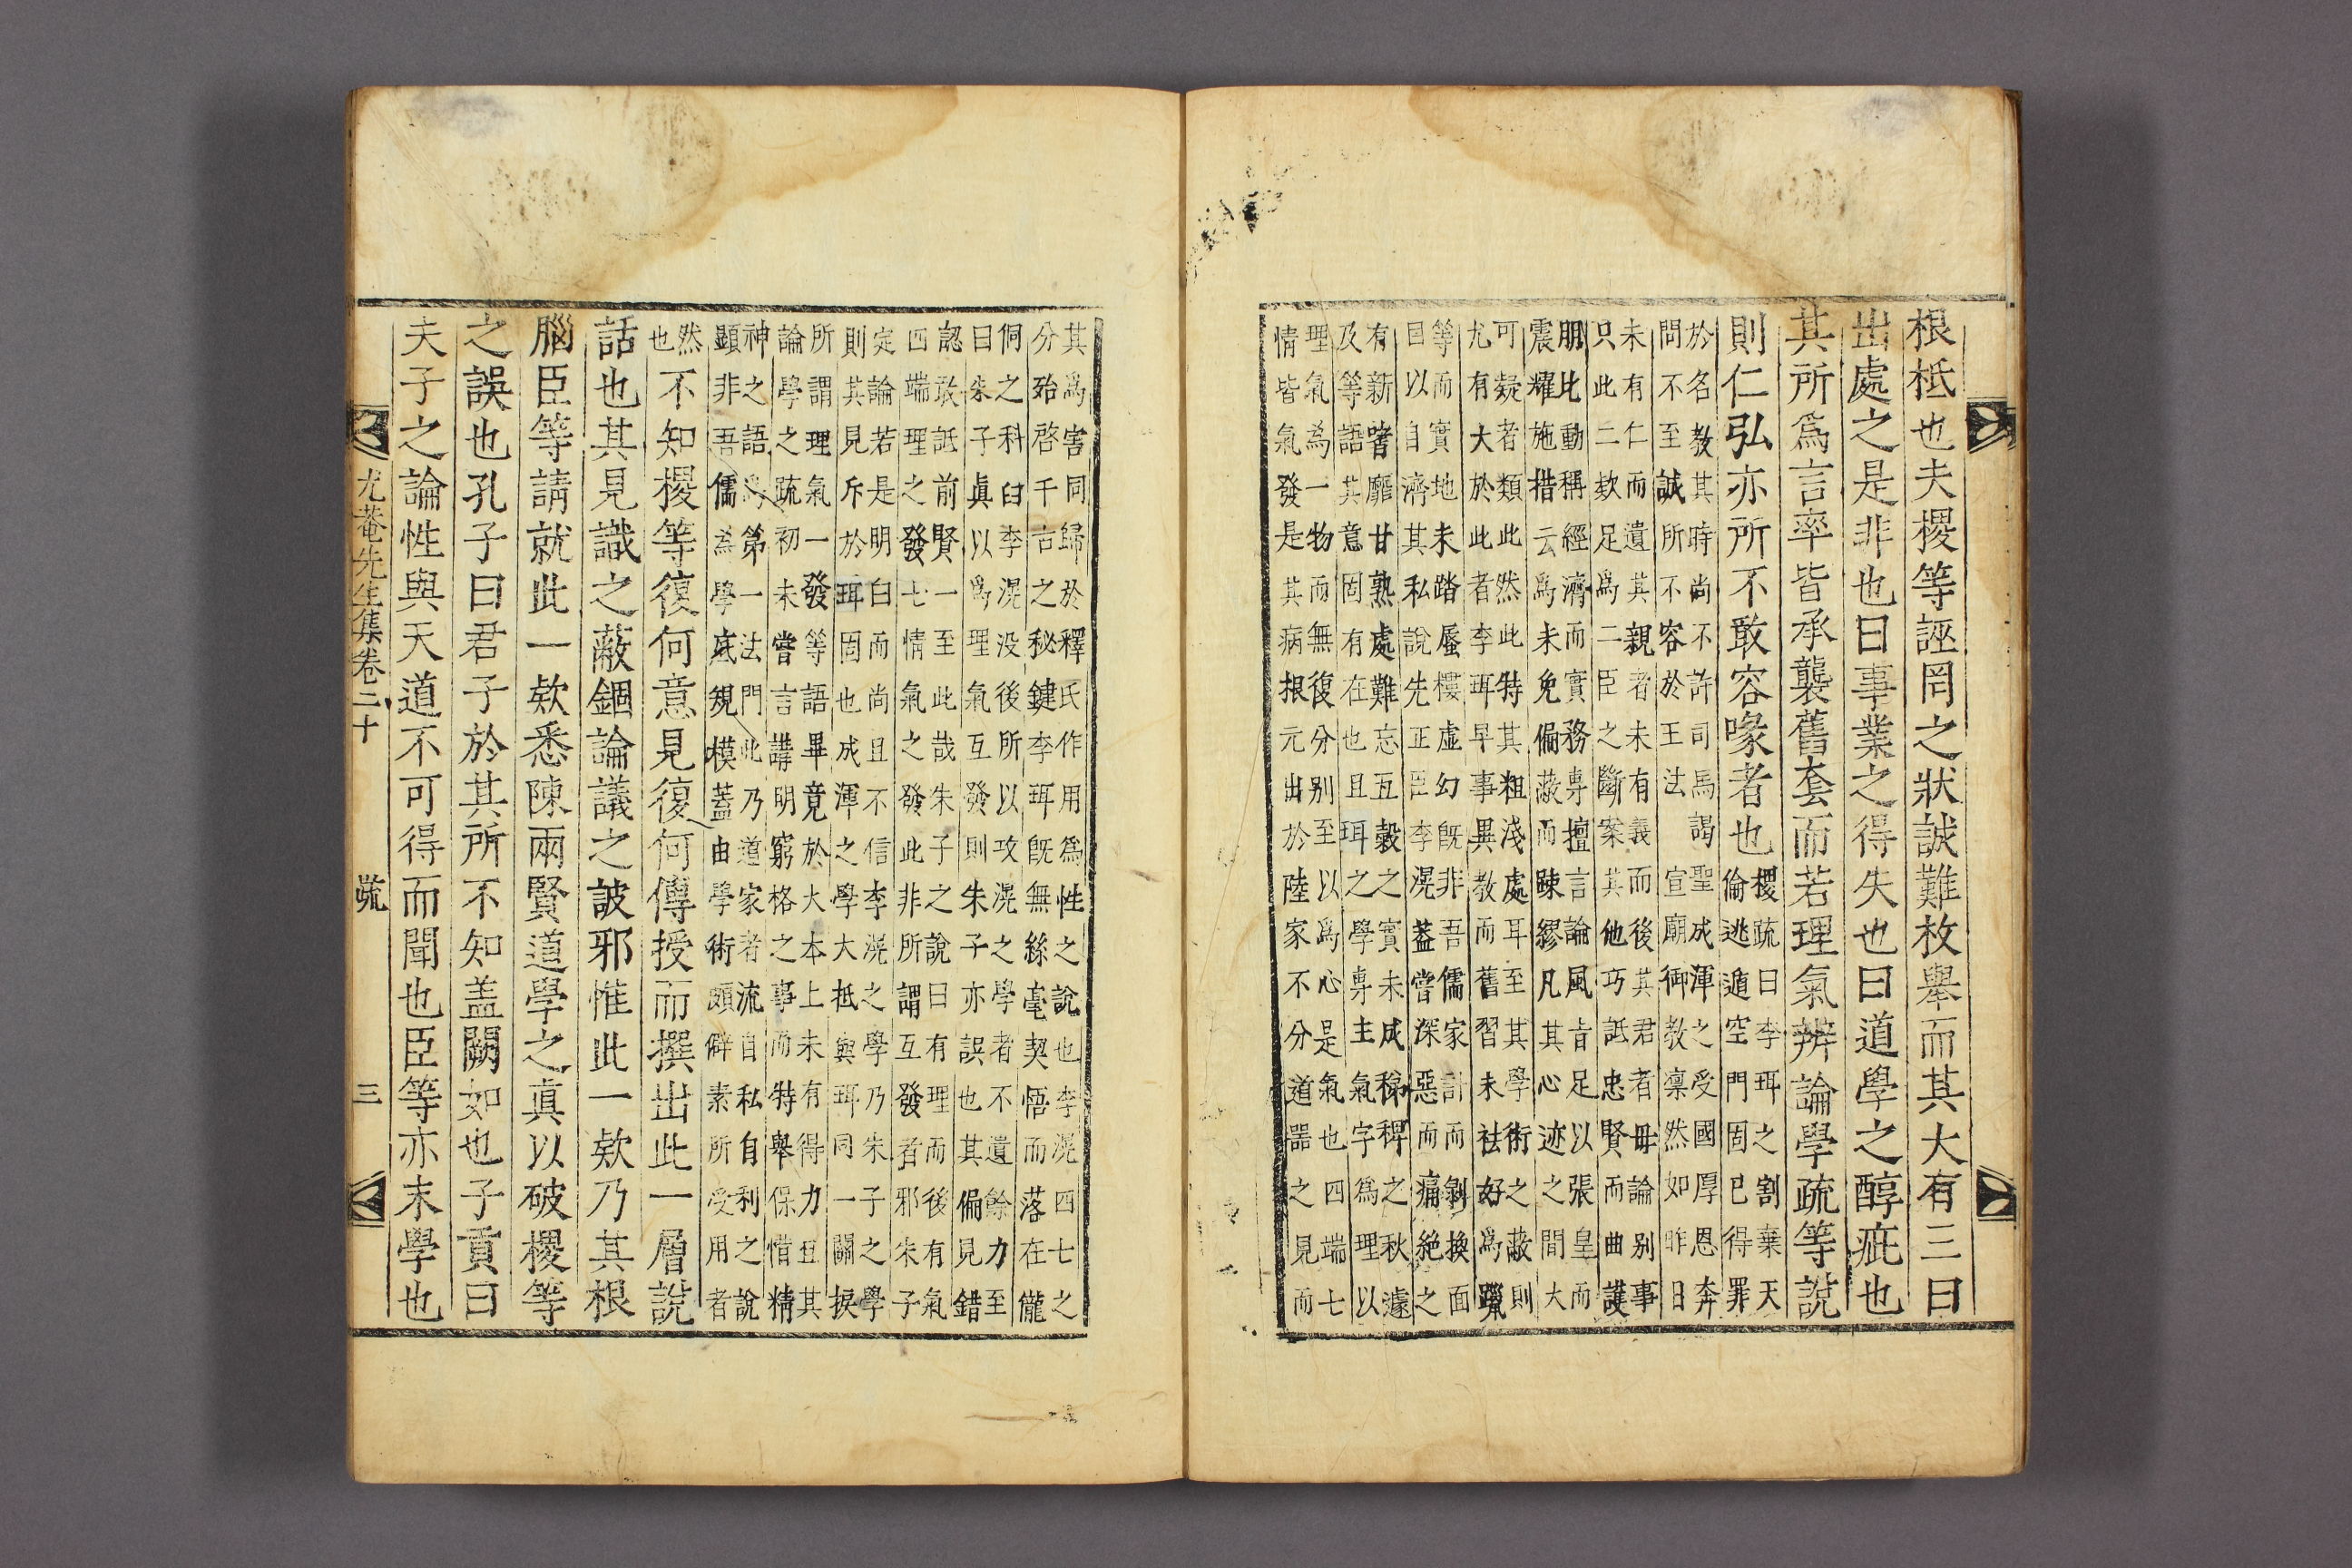 根柢也夫㮨等誣罔之狀誠難枚擧而其大有三曰
出處之是非也曰事業之得失也曰道學之醇疵也
其所爲言率皆承襲舊套而若理氣辨論學疏等說
則仁弘亦所不敢容喙者也㮨疏曰李珥之割棄天
倫逃遁空門固已得罪
於名敎其時尚不許司馬謁聖成渾之受國厚恩奔
問不至誠所不容於王法 宣廟御敎凛然如昨日
未有仁而遺其親者未有義而後其君者毋論別事
只此二欵足爲二臣之斷案其他巧詆忠賢而曲護
朋比動稱經濟而實務專擅言論風旨足以張皇而
震耀施措云爲未免偏蔽而踈繆凡其心迹之間大
可疑者類此然此特其粗淺處耳至其學術之蔽則
尤有大於此者李珥早事異敎而舊習未祛好爲躐
等而實地未踏蜃樓虛幻旣非吾儒家計而剝換面
目以自濟其私說先正臣李滉盖嘗深惡而痛絶之
有新嗜靡甘熟處難忘五穀之實未成稊稗之秋遽
及等語其意固有在也且珥之學專主氣字爲理以
理氣爲一物而無復分别至以爲心是氣也四端七
情皆氣發是其病根元出於陸家不分道器之見而
其爲害同歸於釋氏作用爲性之說也李滉四七之
分殆啓千古之秘鍵李珥旣無絲毫契悟而落在儱
侗之科臼李滉没後所以攻滉之學者不遺餘力至
曰朱子眞以爲理氣互發則朱子亦誤也其偏見錯
認敢詆前賢一至此哉朱子之說曰有理而後有氣
四端理之發七情氣之發此非所謂互發者邪朱子
定論若是明白而尚且不信李滉之學乃朱子之學
則其見斥於珥固也成渾之學大抵與珥同一關捩
所謂理氣一發等語畢竟於大本上未有得力且其
論學之疏初未嘗言講明窮格之事而特擧保惜精
神之語爲第一法門此乃道家者流自私自利之說
顯非吾儒爲學底規模蓋由學術頗僻素所受用者
然
也不知㮨等復何意見復何傳授而撰出此一層說
話也其見識之蔽錮論議之詖邪惟此一欵乃其根
腦臣等請就此一欵悉陳兩賢道學之眞以破㮨等
之誤也孔子曰君子於其所不知盖闕如也子貢曰
夫子之論性與天道不可得而聞也臣等亦末學也
尤菴先生集卷二十 疏 三